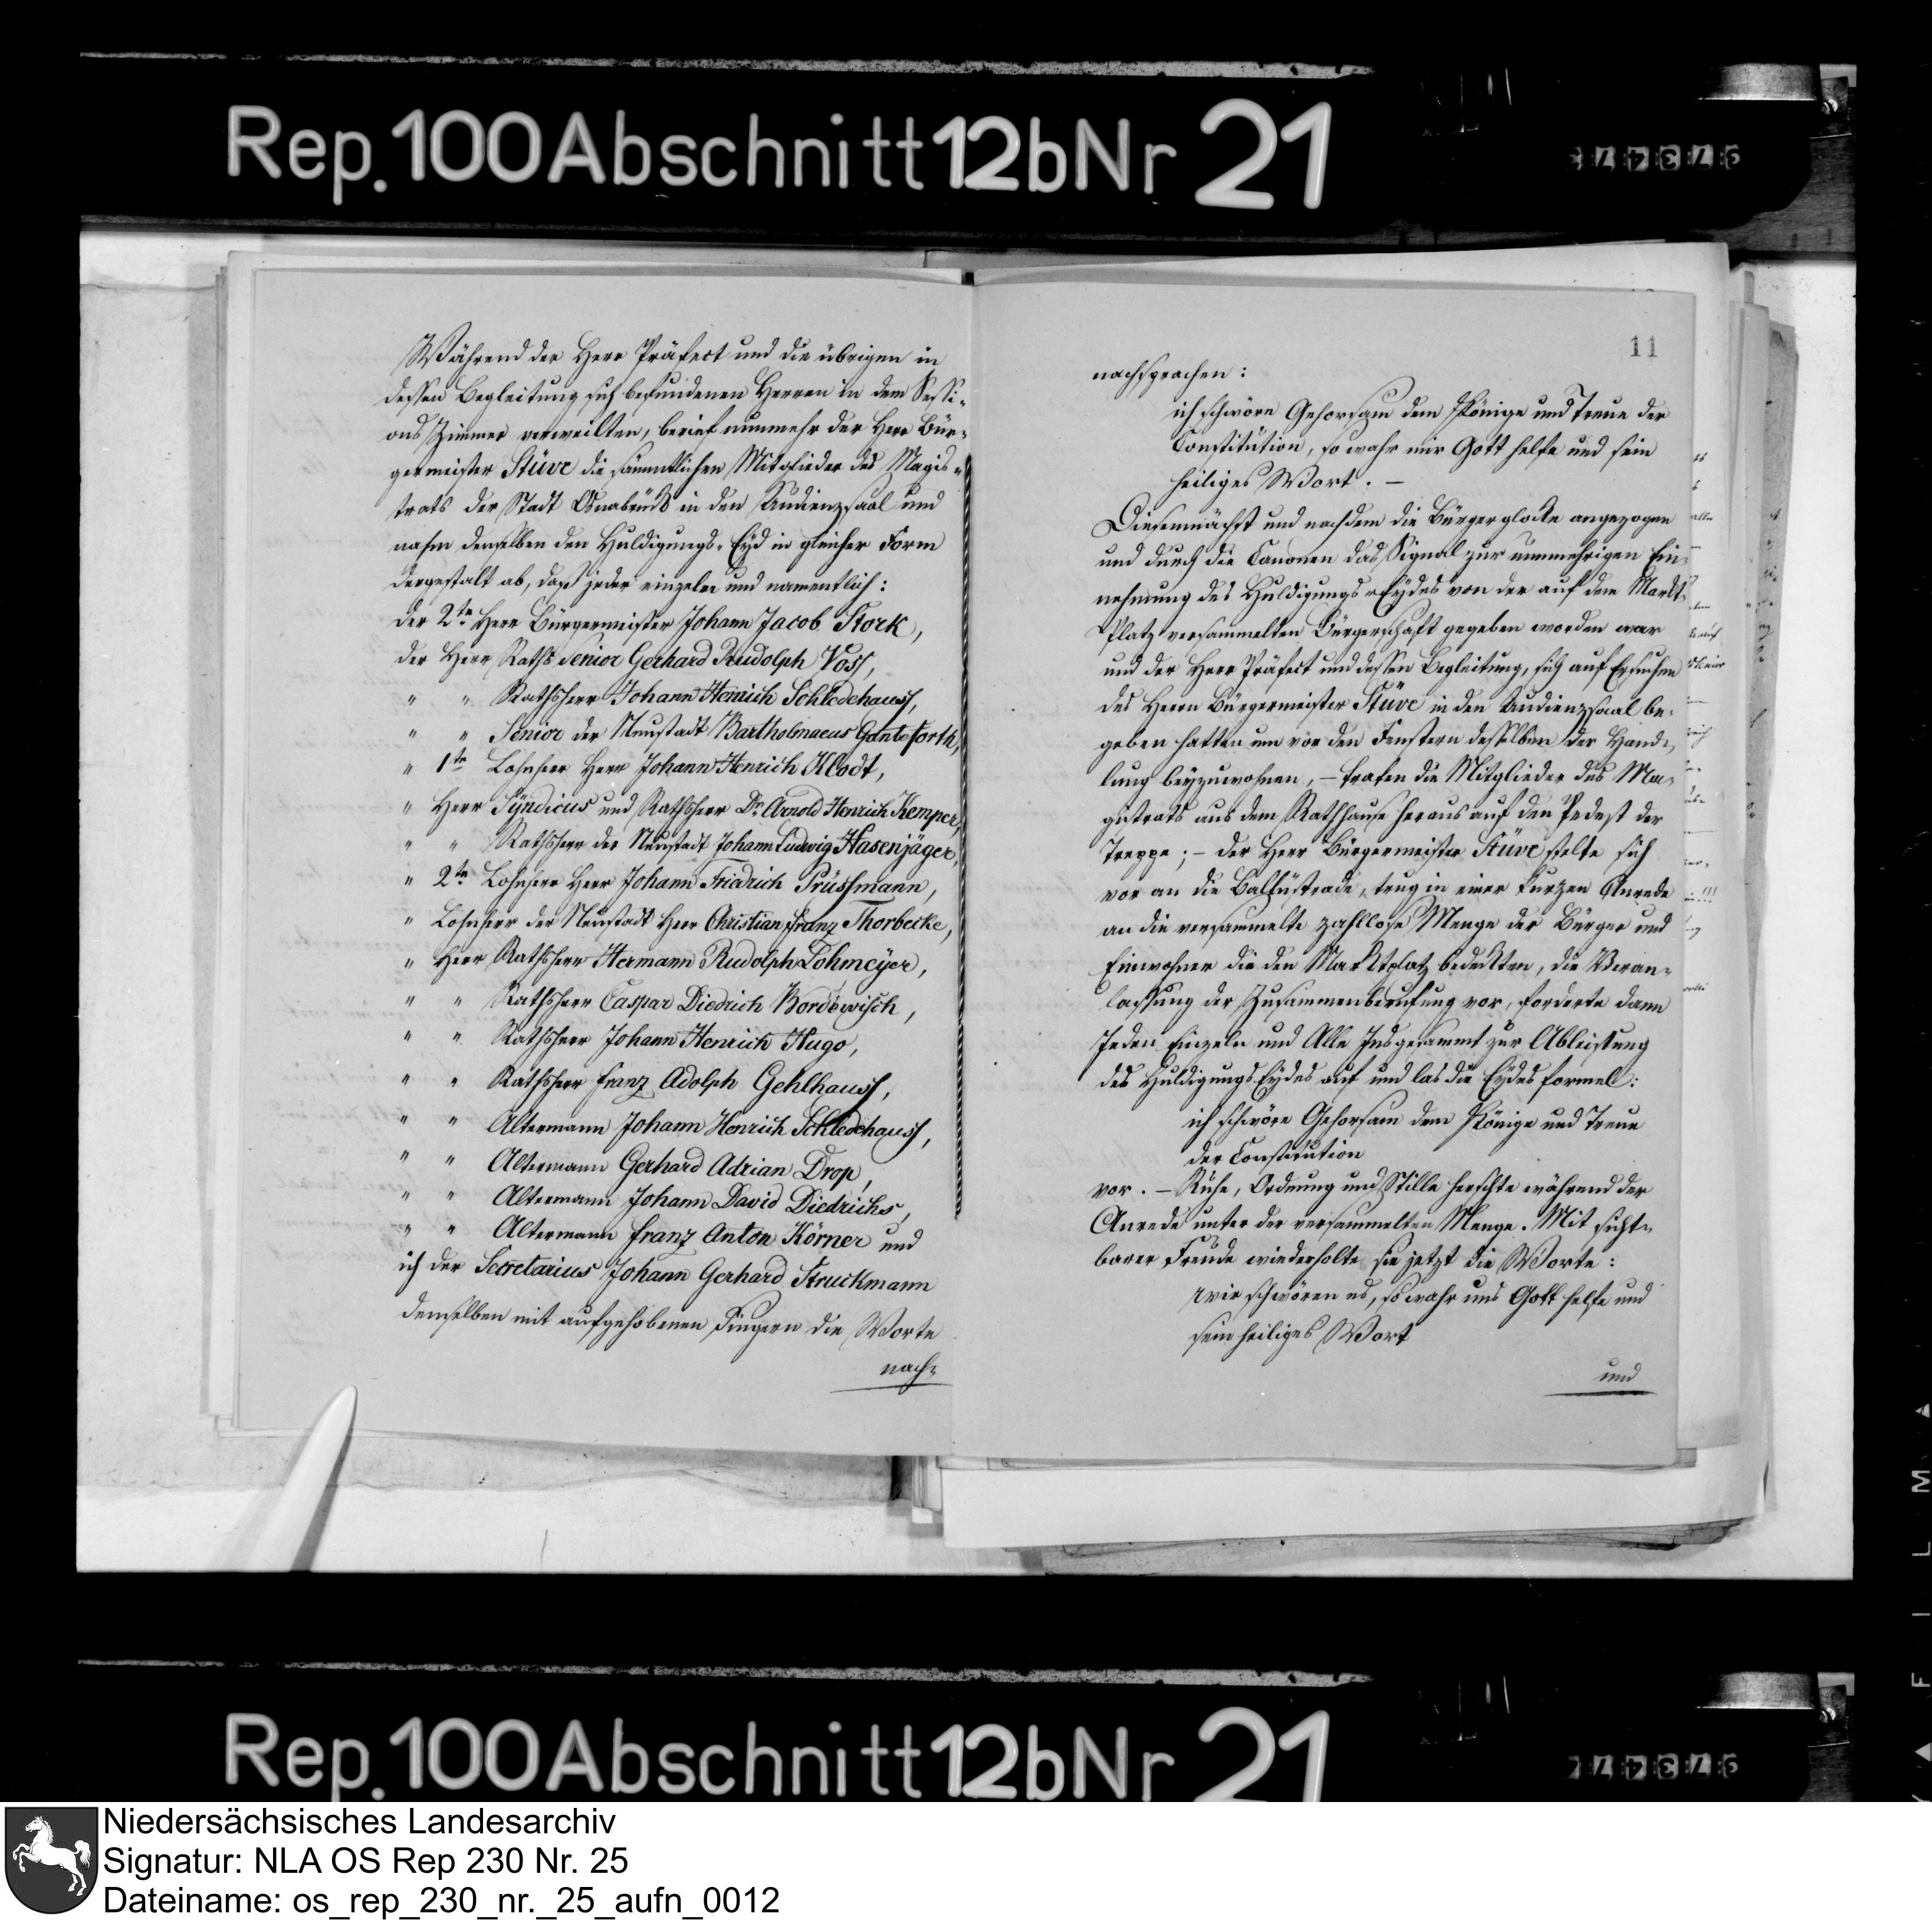 Rep. 100 Abschnitt 12b Nr 21
Während der Herr Präfect und die übrigen in
dessen Begleitung sich befundenen Herren in dem Sessi-
ons Zimmer verweilten, berief nunmehr der Herr Bür-
germeister Stüve die sämmtlichen Mitglieder des Magis-
trats der Stadt Osnabrück in den Audienzsaal und
nahm denselben den Huldigungs-Eyd in gleicher Form
dergestalt ab, daß jeder einzeln und namentlich:
der 2te Herr Bürgermeister Johann Jacob Stork,
der Herr Raths Senior Gerhard Rudolph Voss,
" " Rathsherr Johann Henrich Schledehauss,
" " Senior der Neustadt Bartholmaeus Ganteforth,
" 1te Lohnherr Herr Johann Henrich Klodt,
" Herr Syndicus und Rathsherr Dr. Arnold Henrich Kemper,
" " Rathsherr der Neustadt Johann Ludwig Hasenjäger,
" 2te Lohnherr Herr Johann Friedrich Prüssmann,
" Lohnherr der Neustadt Herr Christian Franz Thorbecke,
" Herr Rathsherr Hermann Rudolph Lohmeyer,
" " Rathsherr Caspar Diedrich Bordewisch,
" " Rathsherr Johann Henrich Hugo,
" " Rathsherr Franz Adolph Gehlhauss,
" " Altermann Johann Henrich Schledehauss,
" " Altermann Gerhard Adrian Drop,
" " Altermann Johann David Diedrichs,
" " Altermann Franz Anton Körner und
ich der Secretarius Johann Gerhard Struckmann
demselben mit aufgehobenen Fingern die Worte
nach-
11
nachsprachen:
ich schwöre Gehorsam dem Könige und Treue der
Constitution, so wahr mir Gott helfe und sein
heiliges Wort. -
Diesemnächst und nachdem die Bürgerglocke angezogen
und durch die Canonen das Signal zur nunmehrigen Ein-
nehmung des Huldigungs-Eydes von der auf dem Markt-
Platz versammelten Bürgerschaft gegeben worden war
und der Herr Präfect und dessen Begleitung, sich auf Ersuchen
des Herrn Bürgermeister Stüve in den Audienzsaal be-
geben hatten um vor den Fenstern desselben der Hand-
lung beyzuwohnen, - traten die Mitglieder des Ma-
gistrats aus dem Rathhause heraus auf den Pedest der
Treppe; - der Herr Bürgermeister Stüve stelte sich
vor an die Ballüstrade, trug in einer kurzen Anrede
an die versammelte zahllose Menge der Bürger und
Einwohner die den Marktplatz bedeckten, die Veran-
lassung der Zusammenberufung vor, forderte dann
Jeden Einzeln und Alle Insgesammt zur Ableistung
des Huldigungs Eydes auf und las die Eydes formel:
ich schwöre Gehorsam dem Könige und Treue
der Constitution
vor. - Ruhe, Ordnung und Stille herschte während der
Anrede unter der versammelten Menge. Mit sicht-
barer Freude wiederholte sie jetzt die Worte:
wir schwören es, so wahr uns Gott helfe und
sein heiliges Wort
und
Rep. 100 Abschnitt 12b Nr 21
Niedersächsisches Landesarchiv
Signatur: NLA OS Rep 230 Nr. 25
Dateiname: os_rep_230_nr._25_aufn_0012